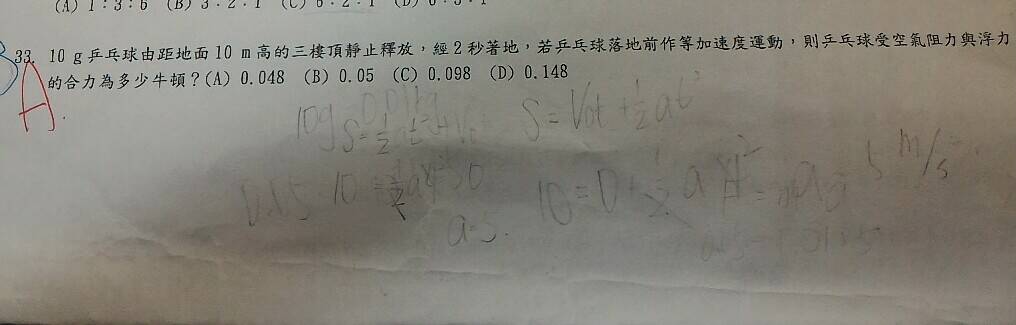 (A) 1:3:6 (B) 3:2:1 (C) 6:2:1 (D) 6:3:1
33. 10 g 乒乓球由距地面 10 m 高的三樓頂靜止釋放，經 2 秒著地，若乒乓球落地前作等加速度運動，則乒乓球受空氣阻力與浮力
的合力為多少牛頓？(A) 0.048 (B) 0.05 (C) 0.098 (D) 0.148
A
10g
S = V0t + ½at²
a=5
10=0+½a
5 m/s